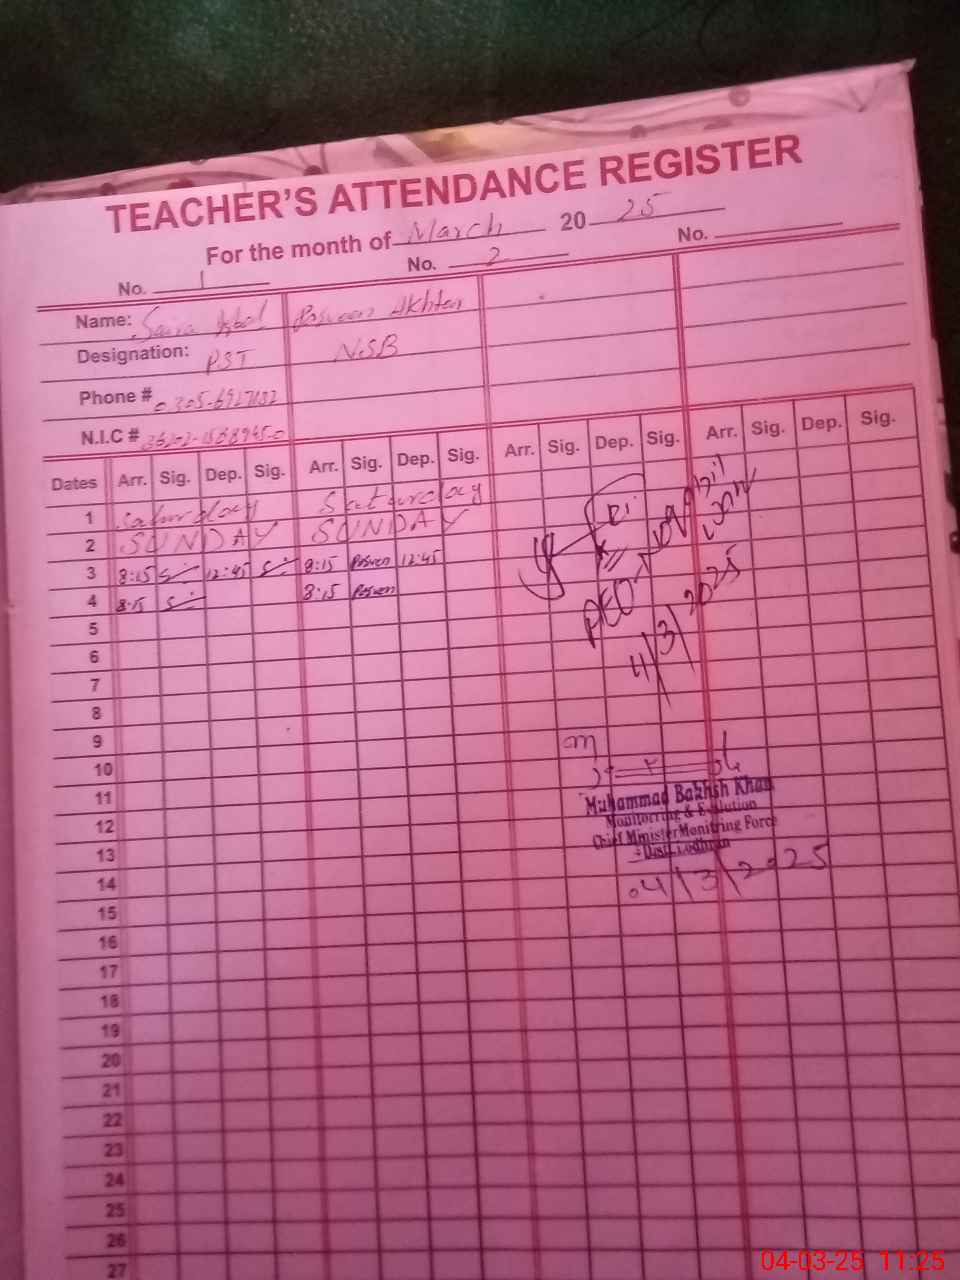 TEACHER'S ATTENDANCE REGISTER
For the month of March 20 25
No. 1 No. 2 No.
Name: Saira Parveen Akhter
Designation: PST NSB
Phone #
N.I.C #
Dates Arr. Sig. Dep. Sig. Arr. Sig. Dep. Sig. Arr. Sig. Dep. Sig. Arr. Sig. Dep. Sig.
1 Saturday Saturday
2 SUNDAY SUNDAY
3 8:15 12:45 8:15 12:45
4 8:15 8:15
5
6
7
4/3/2025
8
9
10
11
Muhammad Bakhsh Khan
12
Monitorring & Evalution
Chief Minister Monitring Force
13
Distt Lodhran
14
04/3/2025
15
16
17
18
19
20
21
22
23
24
25
26
27
04-03-25 11:25